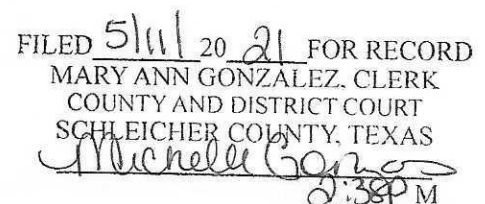 FILED 5/11 20 21 FOR RECORD
MARY ANN GONZALEZ, CLERK
COUNTY AND DISTRICT COURT
SCHLEICHER COUNTY, TEXAS
Michelle
2:38P M